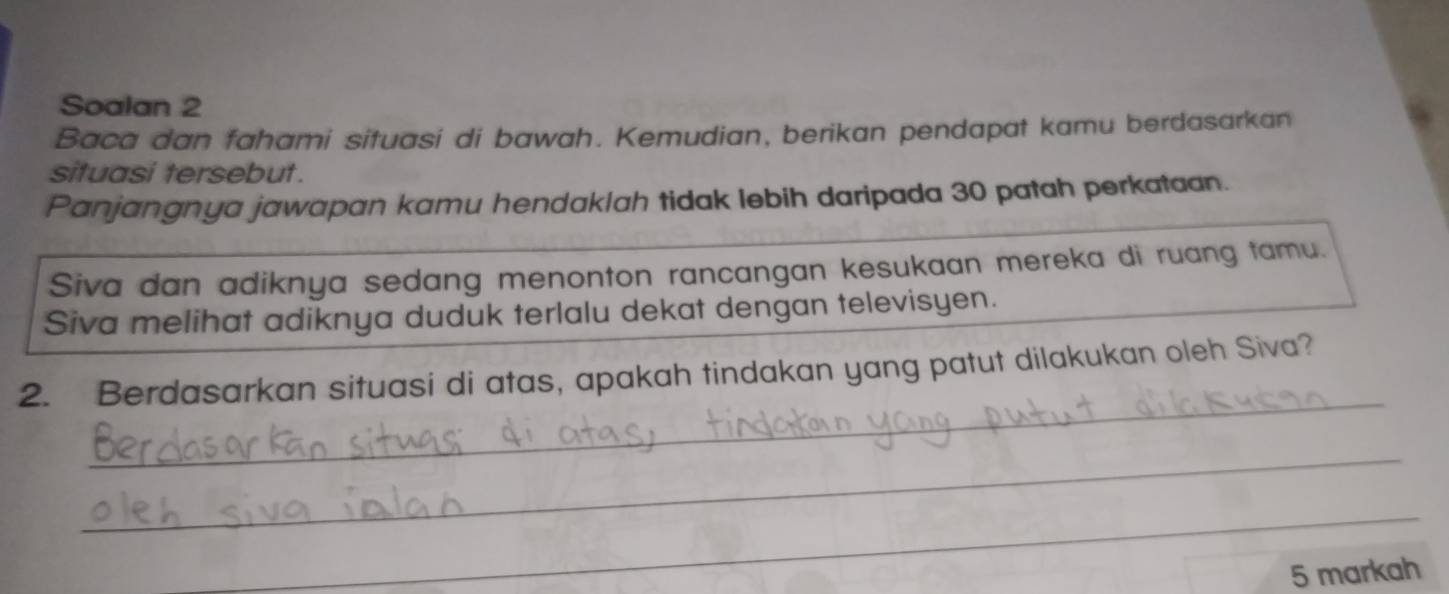 Soalan 2
Baca dan fahami situasi di bawah. Kemudian, berikan pendapat kamu berdasarkan
situasi tersebut.
Panjangnya jawapan kamu hendaklah tidak lebih daripada 30 patah perkataan.
Siva dan adiknya sedang menonton rancangan kesukaan mereka di ruang tamu.
Siva melihat adiknya duduk terlalu dekat dengan televisyen.
2. Berdasarkan situasi di atas, apakah tindakan yang patut dilakukan oleh Siva?
Berdasarkan situasi di atas, tindakan yang putut dilakukan
oleh siva ialah
5 markah